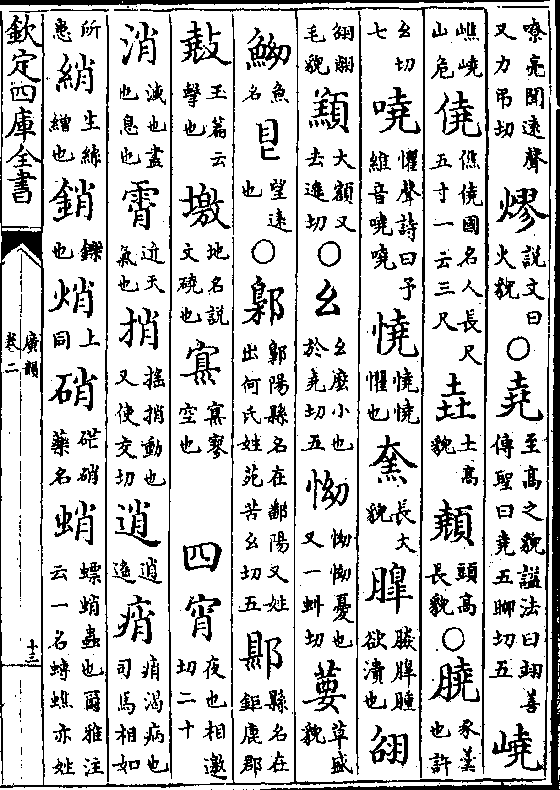 嘹亮聞遠聲又力弔切熮說文曰火貌○堯至高之貌諡法曰翊善傳聖曰堯五聊切五嶢
嶕嶢山危僥僬僥國名人長尺五寸一云三尺垚土高貌顤頭高長貌○膮豕羹也許
幺切七嘵懼聲詩曰予維音嘵嘵憢憢憢懼也長大貌腫欲潰也翗
翗翗毛貌大額又去遙切○幺幺麽小也於堯切五怮怮怮憂也又一蚪切葽草盛貌
魚名望遠也○鄡鄡陽縣名在鄱陽又姓出何氏姓苑苦幺切五縣名在鉅鹿郡
玉篇云擊也墽地名說文磽也空也四宵夜也相邀切二十
消滅也盡也息也霄近天氣也捎搖捎動也又使交切逍逍遙痟痟渴病也司馬相如
所患綃生絲繒也銷鑠也焇上同硝硭硝藥名蛸螵蛸蟲也爾雅注云一名䗚蟭亦姓
欽定四庫全書
廣韻
卷二
十三